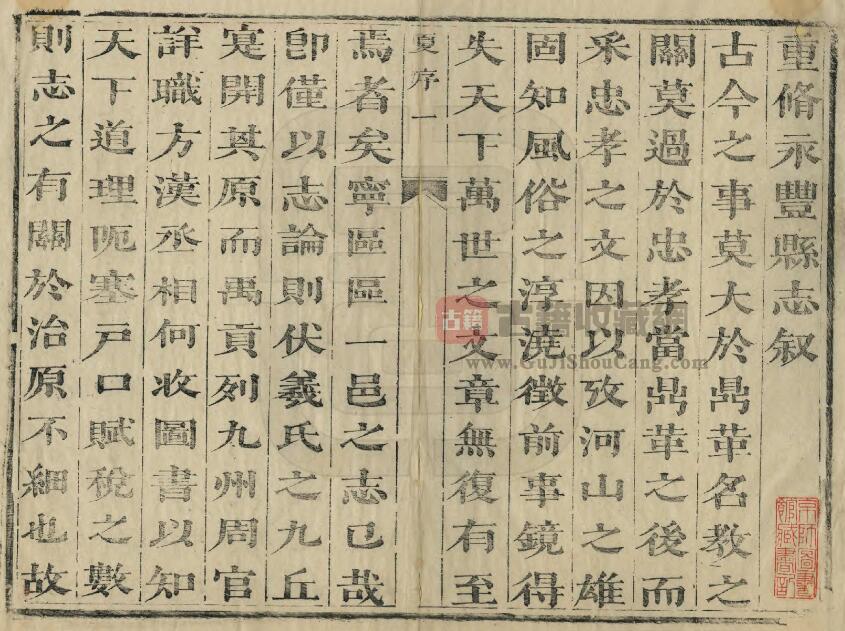 重脩永豐縣志叙
古今之事莫大於鼎革名教之
關莫過於忠孝當鼎革之後而
采忠孝之文因以攷河山之雄
固知風俗之淳澆徴前事鏡得
失天下萬世之文章無復有至
夏序一
焉者矣寧區區一邑之志已哉
卽僅以志論則伏羲氏之九丘
寔開其原而禹貢列九州周官
詳職方漢丞相何收圖書以知
天下道理阨塞戸口賦稅之數
則志之有關於治原不細也故
古籍
古籍收藏網
www.GuJiShouCang.com